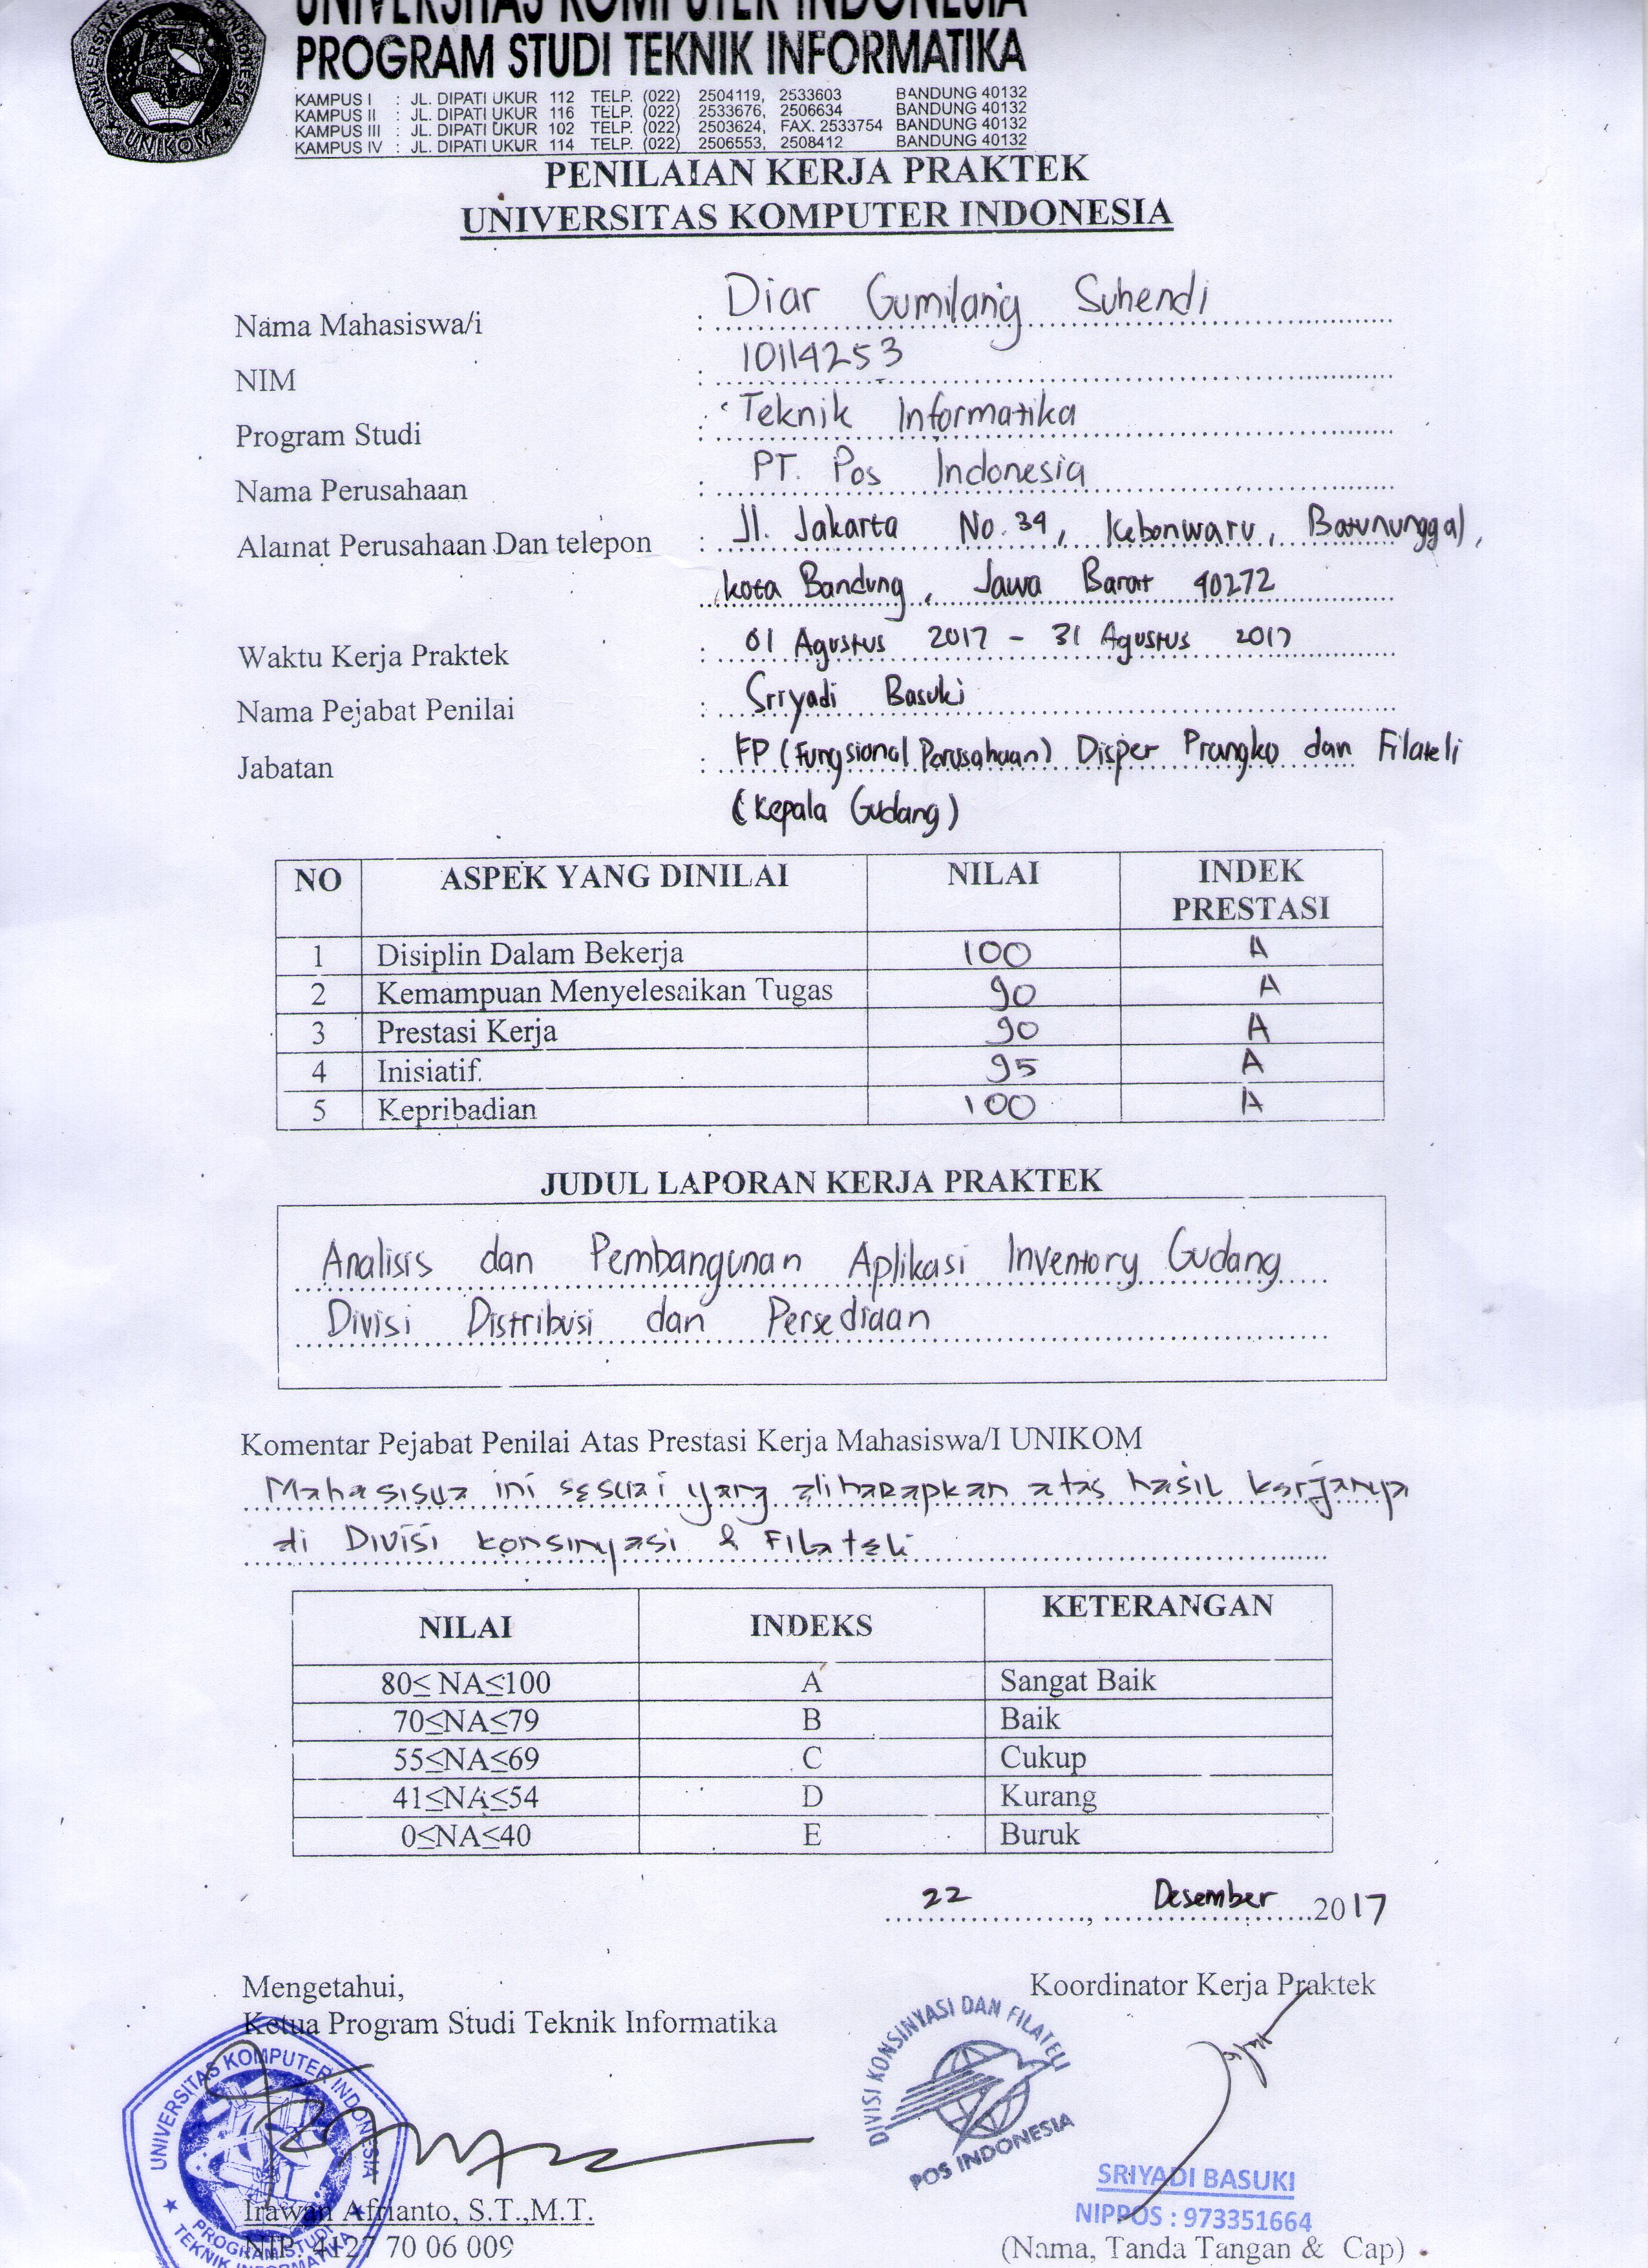 UNIVERSITAS KOMPUTER INDONESIA
PROGRAM STUDI TEKNIK INFORMATIKA
KAMPUS I : JL. DIPATI UKUR 112 TELP. (022) 2504119, 2533603 BANDUNG 40132
KAMPUS II : JL. DIPATI UKUR 116 TELP. (022) 2533676, 2506634 BANDUNG 40132
KAMPUS III : JL. DIPATI UKUR 102 TELP. (022) 2503624, FAX. 2533754 BANDUNG 40132
KAMPUS IV : JL. DIPATI UKUR 114 TELP. (022) 2506553, 2508412 BANDUNG 40132
UNIKOM
PENILAIAN KERJA PRAKTEK
UNIVERSITAS KOMPUTER INDONESIA
Nama Mahasiswa/i : Diar Gumilang Suhendi
NIM : 10114253
Program Studi : Teknik Informatika
Nama Perusahaan : PT. Pos Indonesia
Alamat Perusahaan Dan telepon : Jl. Jakarta No. 34, Kebonwaru, Batununggal,
Kota Bandung, Jawa Barat 40272
Waktu Kerja Praktek : 01 Agustus 2017 - 31 Agustus 2017
Nama Pejabat Penilai : Sriyadi Basuki
Jabatan : FP (Fungsional Perusahaan) Disper Prangko dan Filateli
(Kepala Gudang)
NO ASPEK YANG DINILAI NILAI INDEK PRESTASI
1 Disiplin Dalam Bekerja 100 A
2 Kemampuan Menyelesaikan Tugas 90 A
3 Prestasi Kerja 90 A
4 Inisiatif 95 A
5 Kepribadian 100 A
JUDUL LAPORAN KERJA PRAKTEK
Analisis dan Pembangunan Aplikasi Inventory Gudang
Divisi Distribusi dan Persediaan
Komentar Pejabat Penilai Atas Prestasi Kerja Mahasiswa/I UNIKOM
Mahasiswa ini sesuai yang diharapkan atas hasil kerjanya
di Divisi Konsinyasi & Filateli
NILAI INDEKS KETERANGAN
80≤ NA≤100 A Sangat Baik
70≤NA≤79 B Baik
55≤NA≤69 C Cukup
41≤NA≤54 D Kurang
0≤NA≤40 E Buruk
22, Desember 2017
Mengetahui,
Ketua Program Studi Teknik Informatika
Koordinator Kerja Praktek
UNIVERSITAS KOMPUTER INDONESIA
PROGRAM STUDI
TEKNIK INFORMATIKA
DIVISI KONSINYASI DAN FILATELI
POS INDONESIA
Irawan Afrianto, S.T.,M.T.
NIP. 4127 70 06 009
SRIYADI BASUKI
NIPPOS : 973351664
(Nama, Tanda Tangan & Cap)